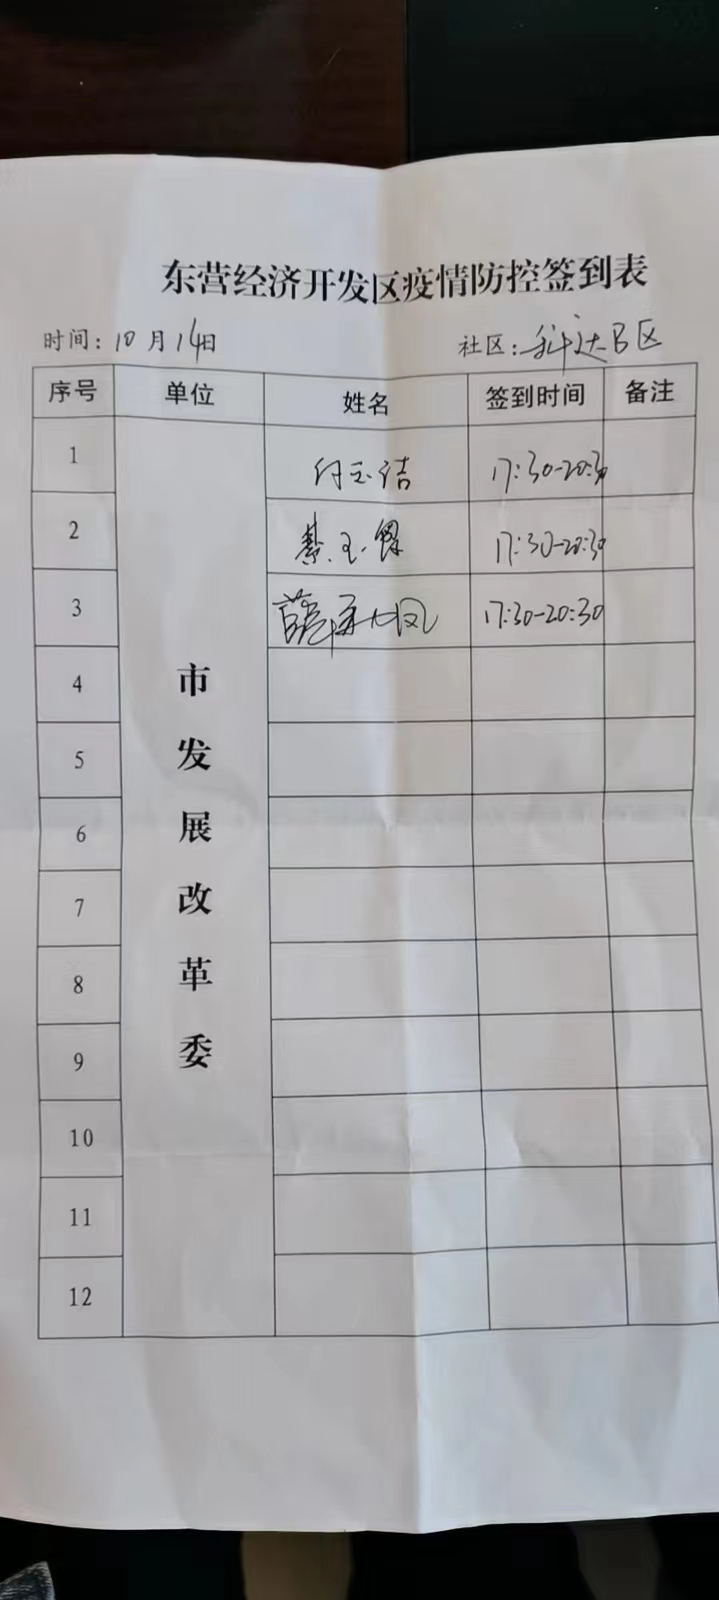 东营经济开发区疫情防控签到表
时间：10月14日 社区：科达B区
序号 单位 姓名 签到时间 备注
1 付玉洁 17:30-20:30
2 綦玉 17:30-20:30
3 薛 凤 17:30-20:30
4
5
6
7
8
9
10
11
12
市发展改革委